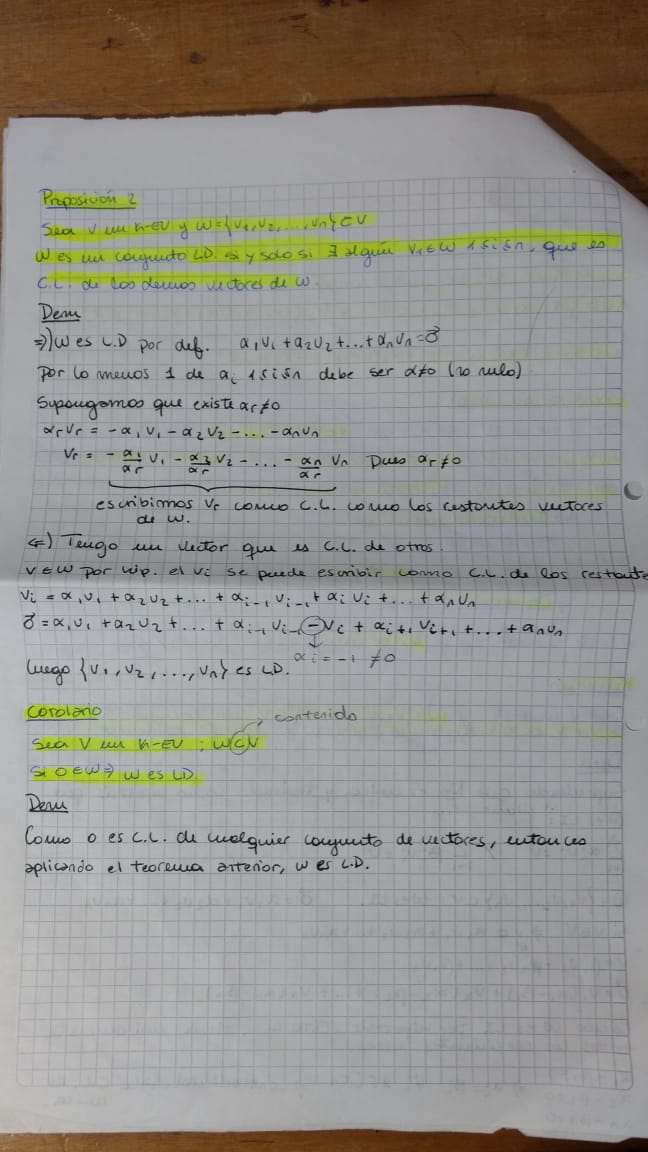 Proposición 2
Sea V un K-EV y W={V₁,V₂,...,Vₙ}⊂V
W es un conjunto LD. si y solo si ∃ algún Vᵢ∈W 1≤i≤n, que es
C.L. de los demos vectores de W.
Dem
⇒)W es L.D por def. α₁V₁+α₂V₂+...+αₙVₙ=0⃗
Por lo menos 1 de αᵢ 1≤i≤n debe ser α≠0 (no nulo)
Supongamos que existe αᵣ≠0
αᵣVᵣ = -α₁V₁-α₂V₂-...-αₙVₙ
Vᵣ = -α₁/αᵣ V₁ - α₂/αᵣ V₂ - ... - αₙ/αᵣ Vₙ Pues αᵣ≠0
escribimos Vᵣ como C.L. como los restantes vectores
de W.
⇐) Tengo un vector que es C.L. de otros.
V∈W por hip. el Vᵢ se puede escribir como C.L. de los restante
Vᵢ = α₁V₁+α₂V₂+...+αᵢ₋₁Vᵢ₋₁+αᵢVᵢ+...+αₙVₙ
0⃗=α₁V₁+α₂V₂+...+αᵢ₋₁Vᵢ₋₁-Vᵢ+αᵢ₊₁Vᵢ₊₁+...+αₙVₙ
↓
αᵢ=-1 ≠0
luego {V₁,V₂,...,Vₙ} es LD.
Corolario
contenido
Sea V un K-EV ; W⊂V
Si 0∈W⇒ W es LD.
Dem
Como 0 es C.L. de cualquier conjunto de vectores, entonces
aplicando el teorema anterior, W es L.D.